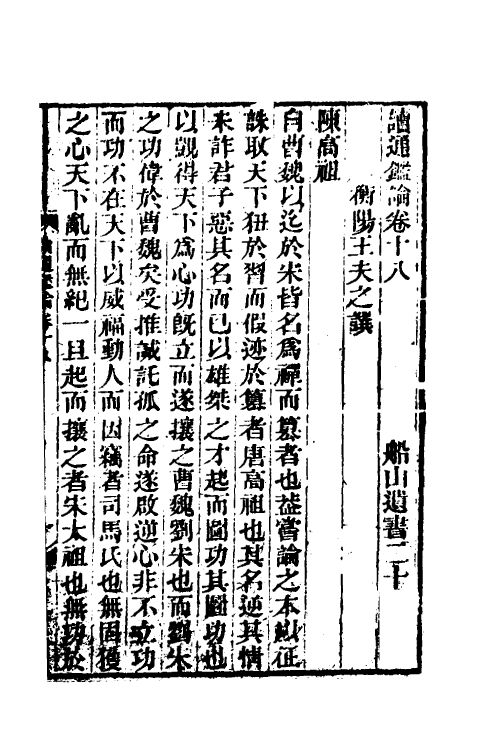 讀通鑑論卷十八 船山遺書二十
衡陽王夫之譔
陳高祖
自曹魏以迄於宋皆名爲禪而篡者也葢嘗論之本以征
誅取天下狃於習而假迹於篡者唐高祖也其名逆其情
未詐君子惡其名而已以雄桀之才起而圖功其圖功也
以覬得天下爲心功旣立而遂攘之曹魏劉宋也而劉宋
之功偉於曹魏矣受推誠託孤之命遂啟逆心非不立功
而功不在天下以威福動人而因竊者司馬氏也無固獲
之心天下亂而無紀一旦起而攘之者宋太祖也無功於